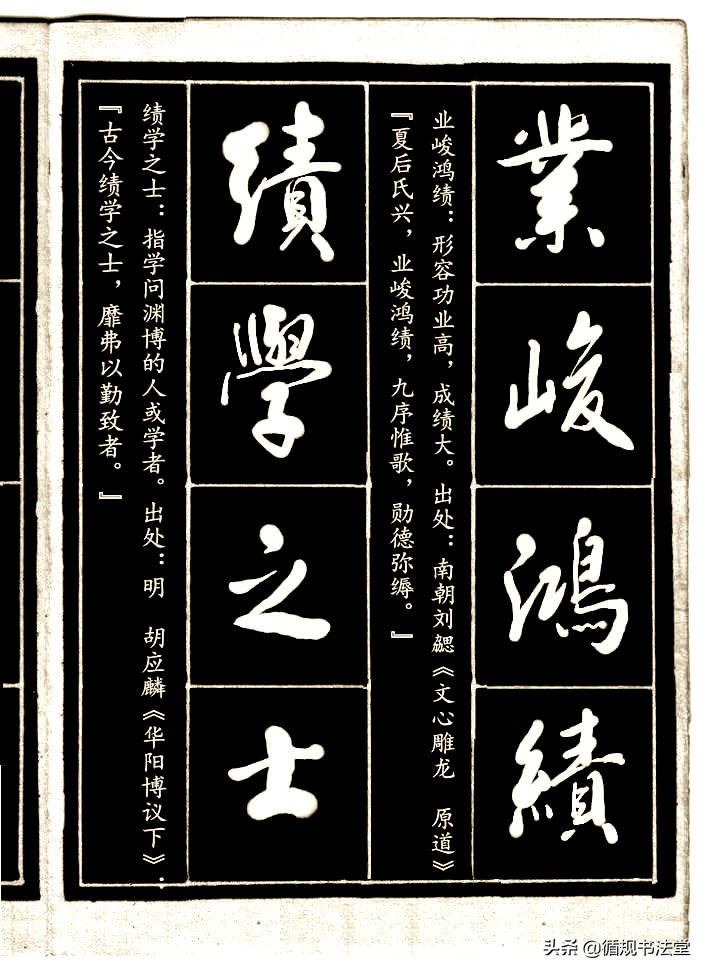 業峻鴻績
业峻鸿绩：形容功业高，成绩大。出处：南朝刘勰《文心雕龙 原道》
『夏后氏兴，业峻鸿绩，九序惟歌，勋德弥缛。』
績學之士
绩学之士：指学问渊博的人或学者。出处：明 胡应麟《华阳博议下》：
『古今绩学之士，靡弗以勤致者。』
头条 @循规书法堂